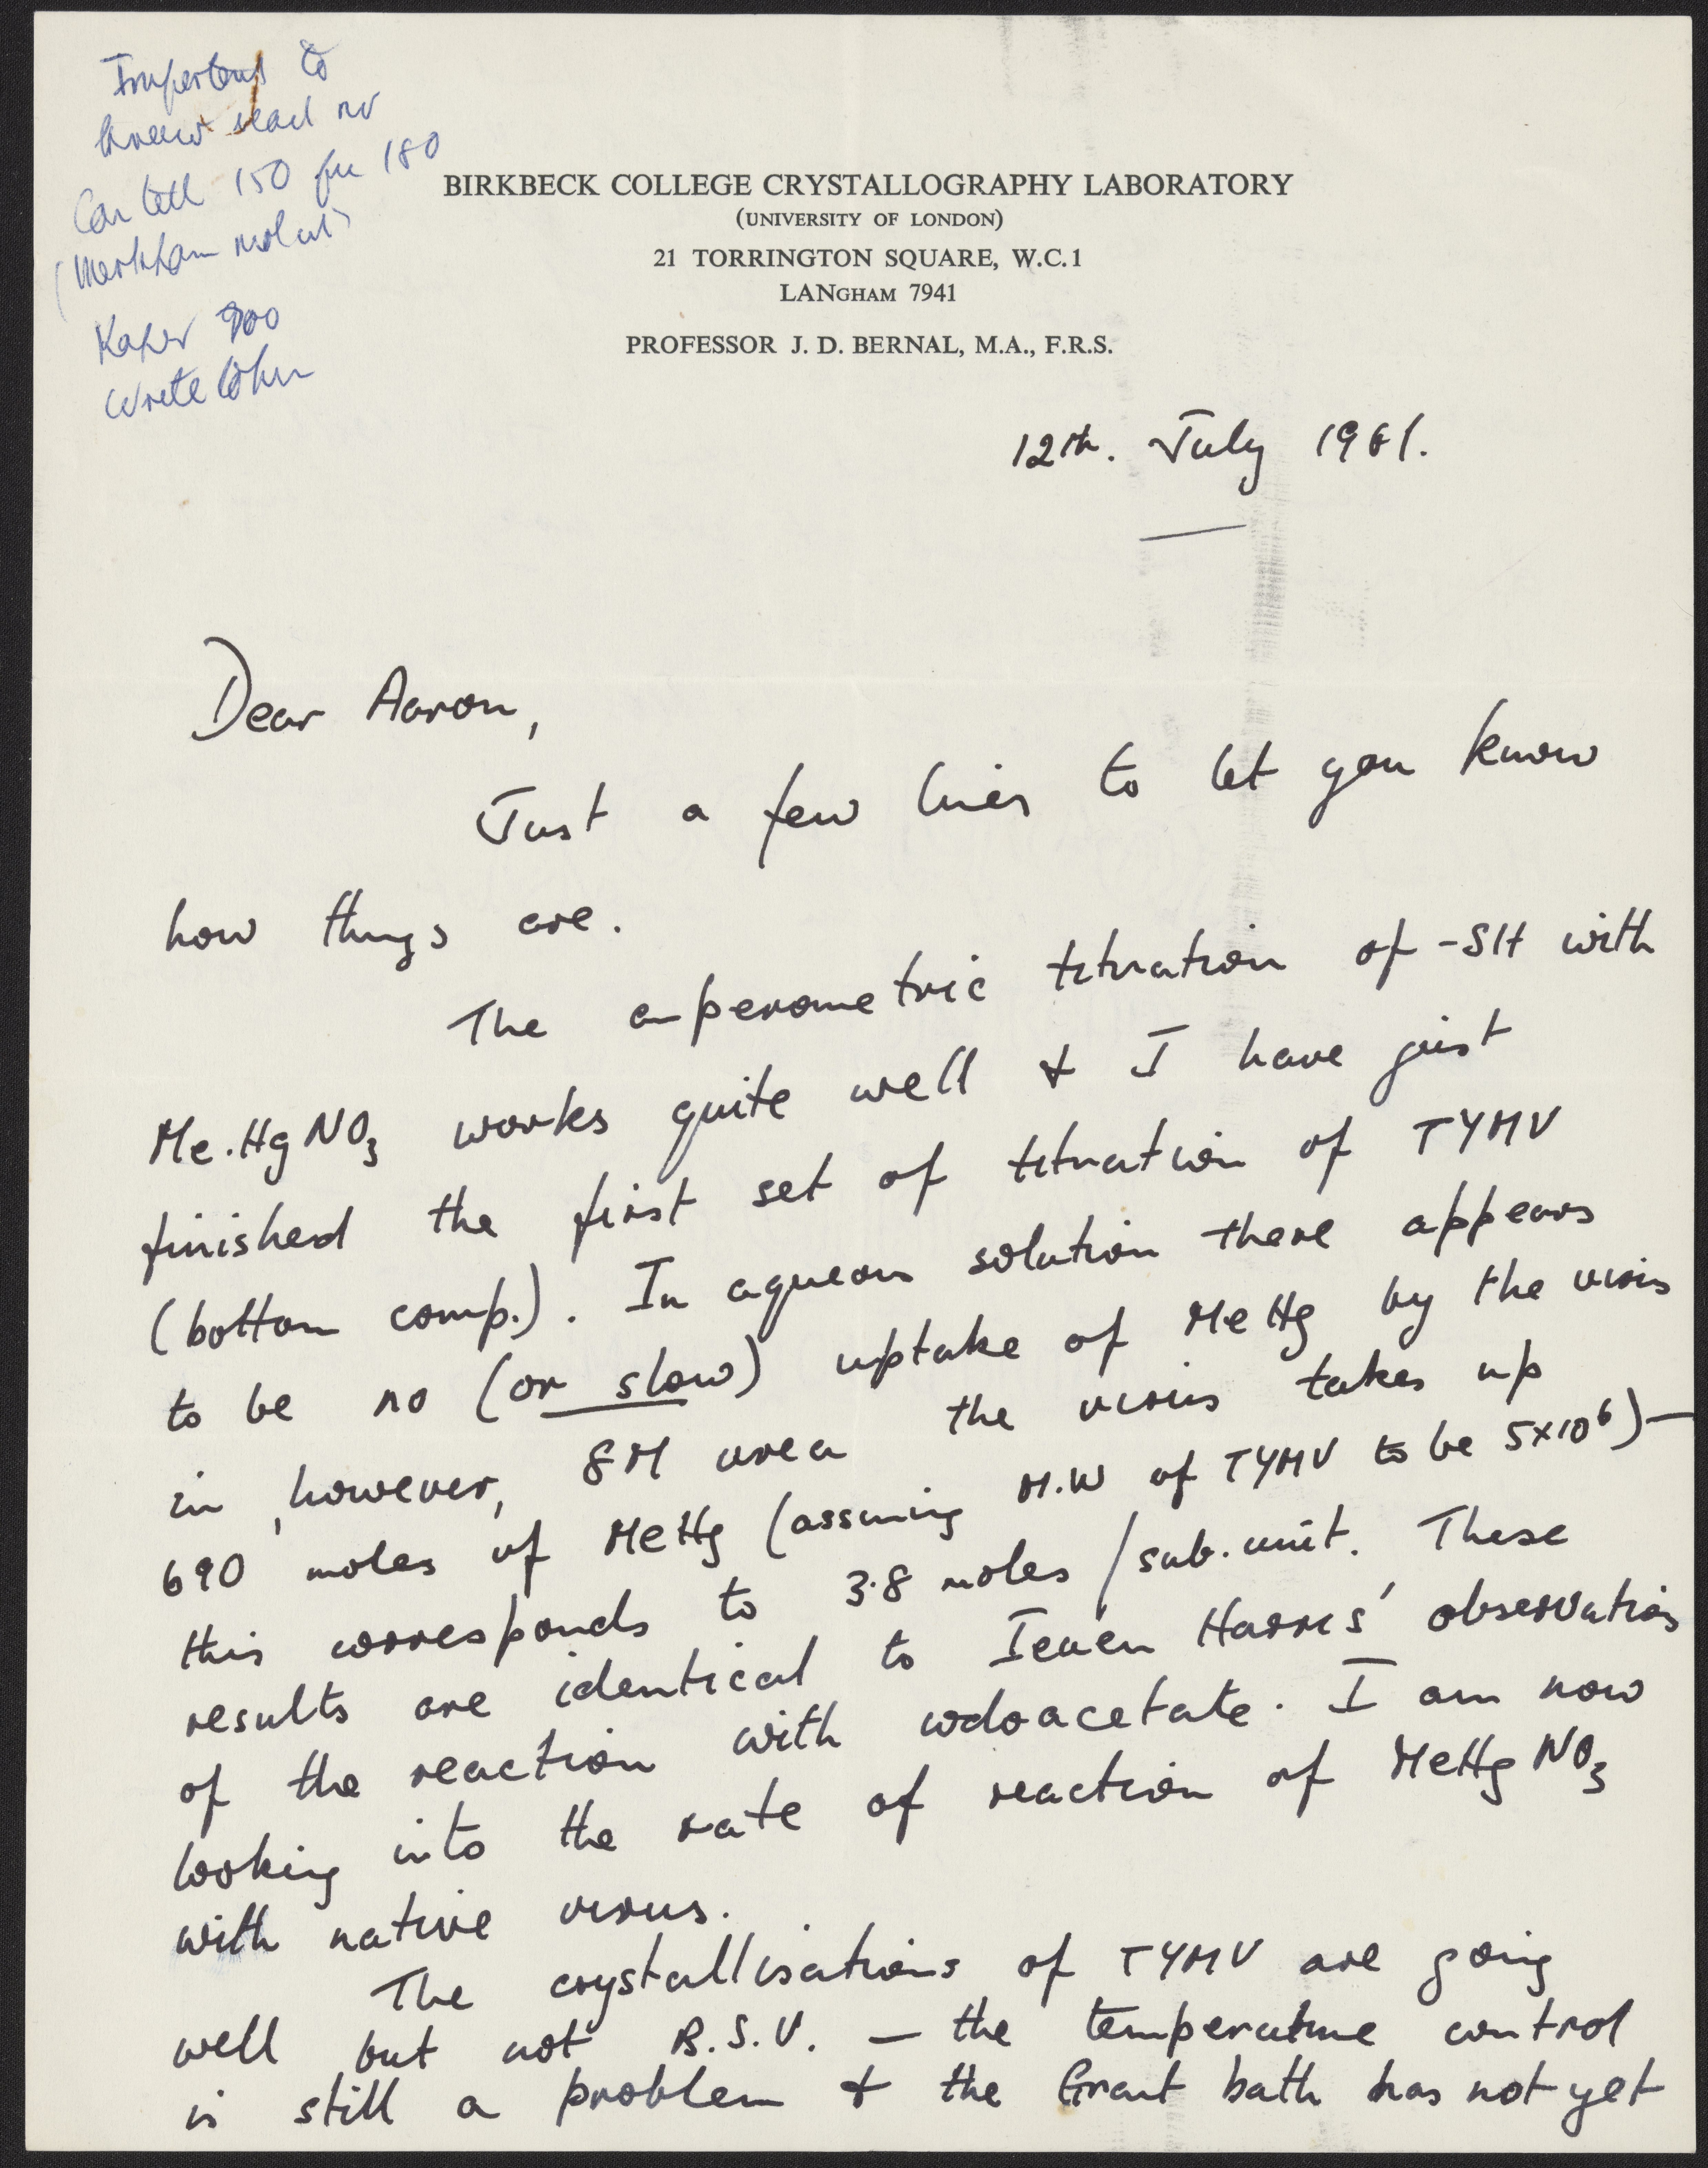 Important to
know
Can tell 150 fr 180
(Markham mol wt)
Kaper 900
Write
BIRKBECK COLLEGE CRYSTALLOGRAPHY LABORATORY
(UNIVERSITY OF LONDON)
21 TORRINGTON SQUARE, W.C.1
LANGHAM 7941
PROFESSOR J. D. BERNAL, M.A., F.R.S.
12th. July 1961.
Dear Aaron,
Just a few lines to let you know
how things are.
The amperometric titration of -SH with
Me.HgNO3 works quite well & I have just
finished the first set of titration of TYMV
(bottom comp.). In aqueous solution there appears
to be no (or slow) uptake of MeHg by the virus
in, however, 8M urea the virus takes up
690 moles of MeHg (assuming M.W of TYMV to be 5x10⁶)—
this corresponds to 3.8 moles/sub.unit. These
results are identical to Ieuen Harris' observations
of the reaction with iodoacetate. I am now
looking into the rate of reaction of MeHgNO3
with native virus.
The crystallisations of TYMV are going
well but not B.S.V. — the temperature control
is still a problem & the Grant bath has not yet